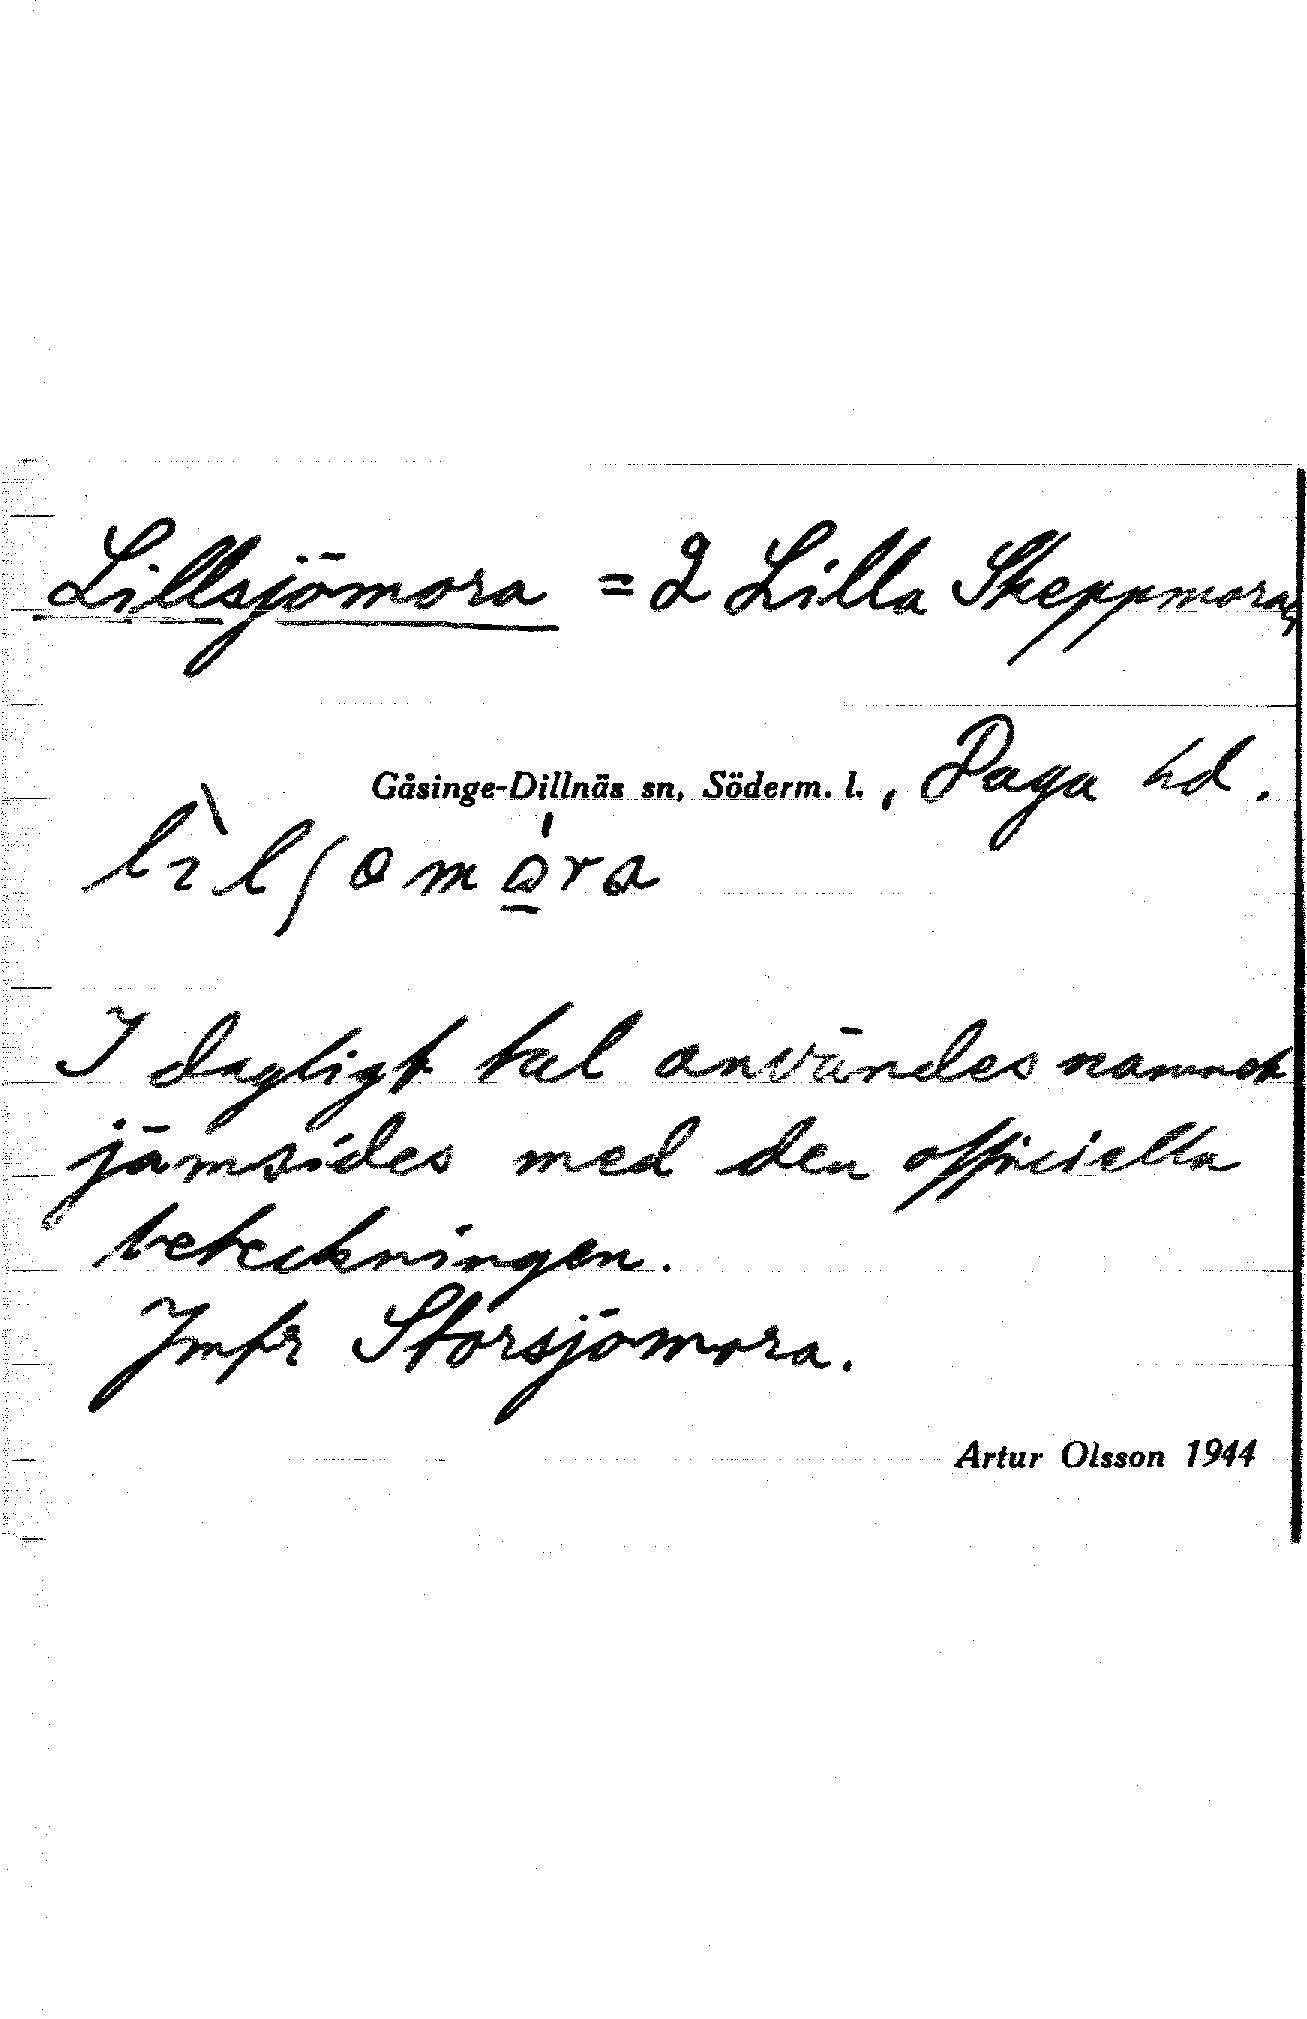 Lillsjömora = 2 Lilla Skeppmora,
Gåsinge-Dillnäs sn, Söderm. l. , Daga hd.
I dagligt tal användes namnet
jämsides med den officiella
beteckningen.
Jmfr Storsjömora.
Artur Olsson 1944